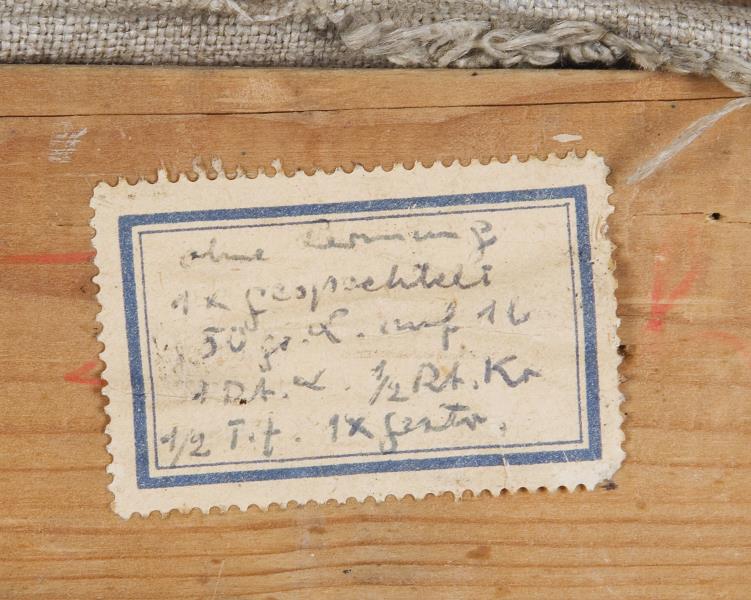 ohne Leimung
1x gespachtelt
50 gr. L. auf 1 l
1 Rt. L. 1/2 Rt. Kr
1/2 T. f. 1x gestr.